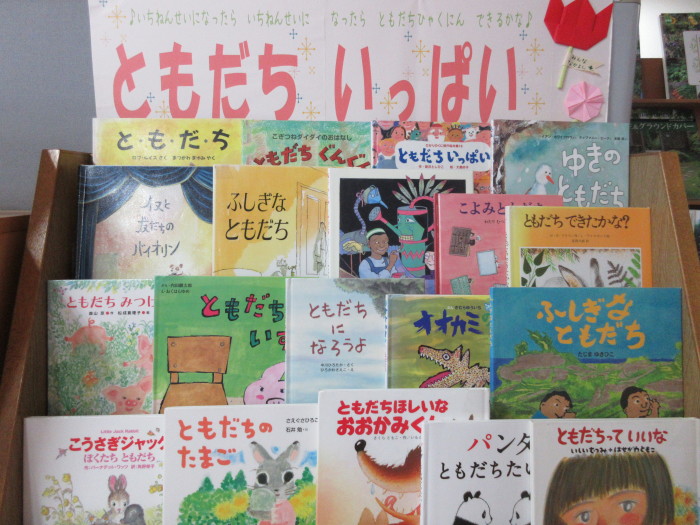 ♪いちねんせいになったら いちねんせいに なったら ともだちひゃくにん できるかな♪
ともだち いっぱい
と・も・だ・ち
こぎつねダイダイのおはなし
ともだちぐんぐ
ともだちいっぱい
ゆきの
ともだち
イヌと
友だちの
バイオリン
ふしぎな
ともだち
こよみともだち
ともだちできたかな?
ともだち みつけ
ともだち
いす
ともだち
に
なろうよ
オオカミ
ふしぎな
ともだち
たじまゆきひこ
Little Jack Rabbit
こうさぎジャック
ぼくたち ともだち
ともだちの
たまご
さえぐさひろこ
石井 勉
ともだちほしいな
おおかみくん
パンダ
ともだちたい
ともだちって いいな
いしいむつみ+はせがわともこ